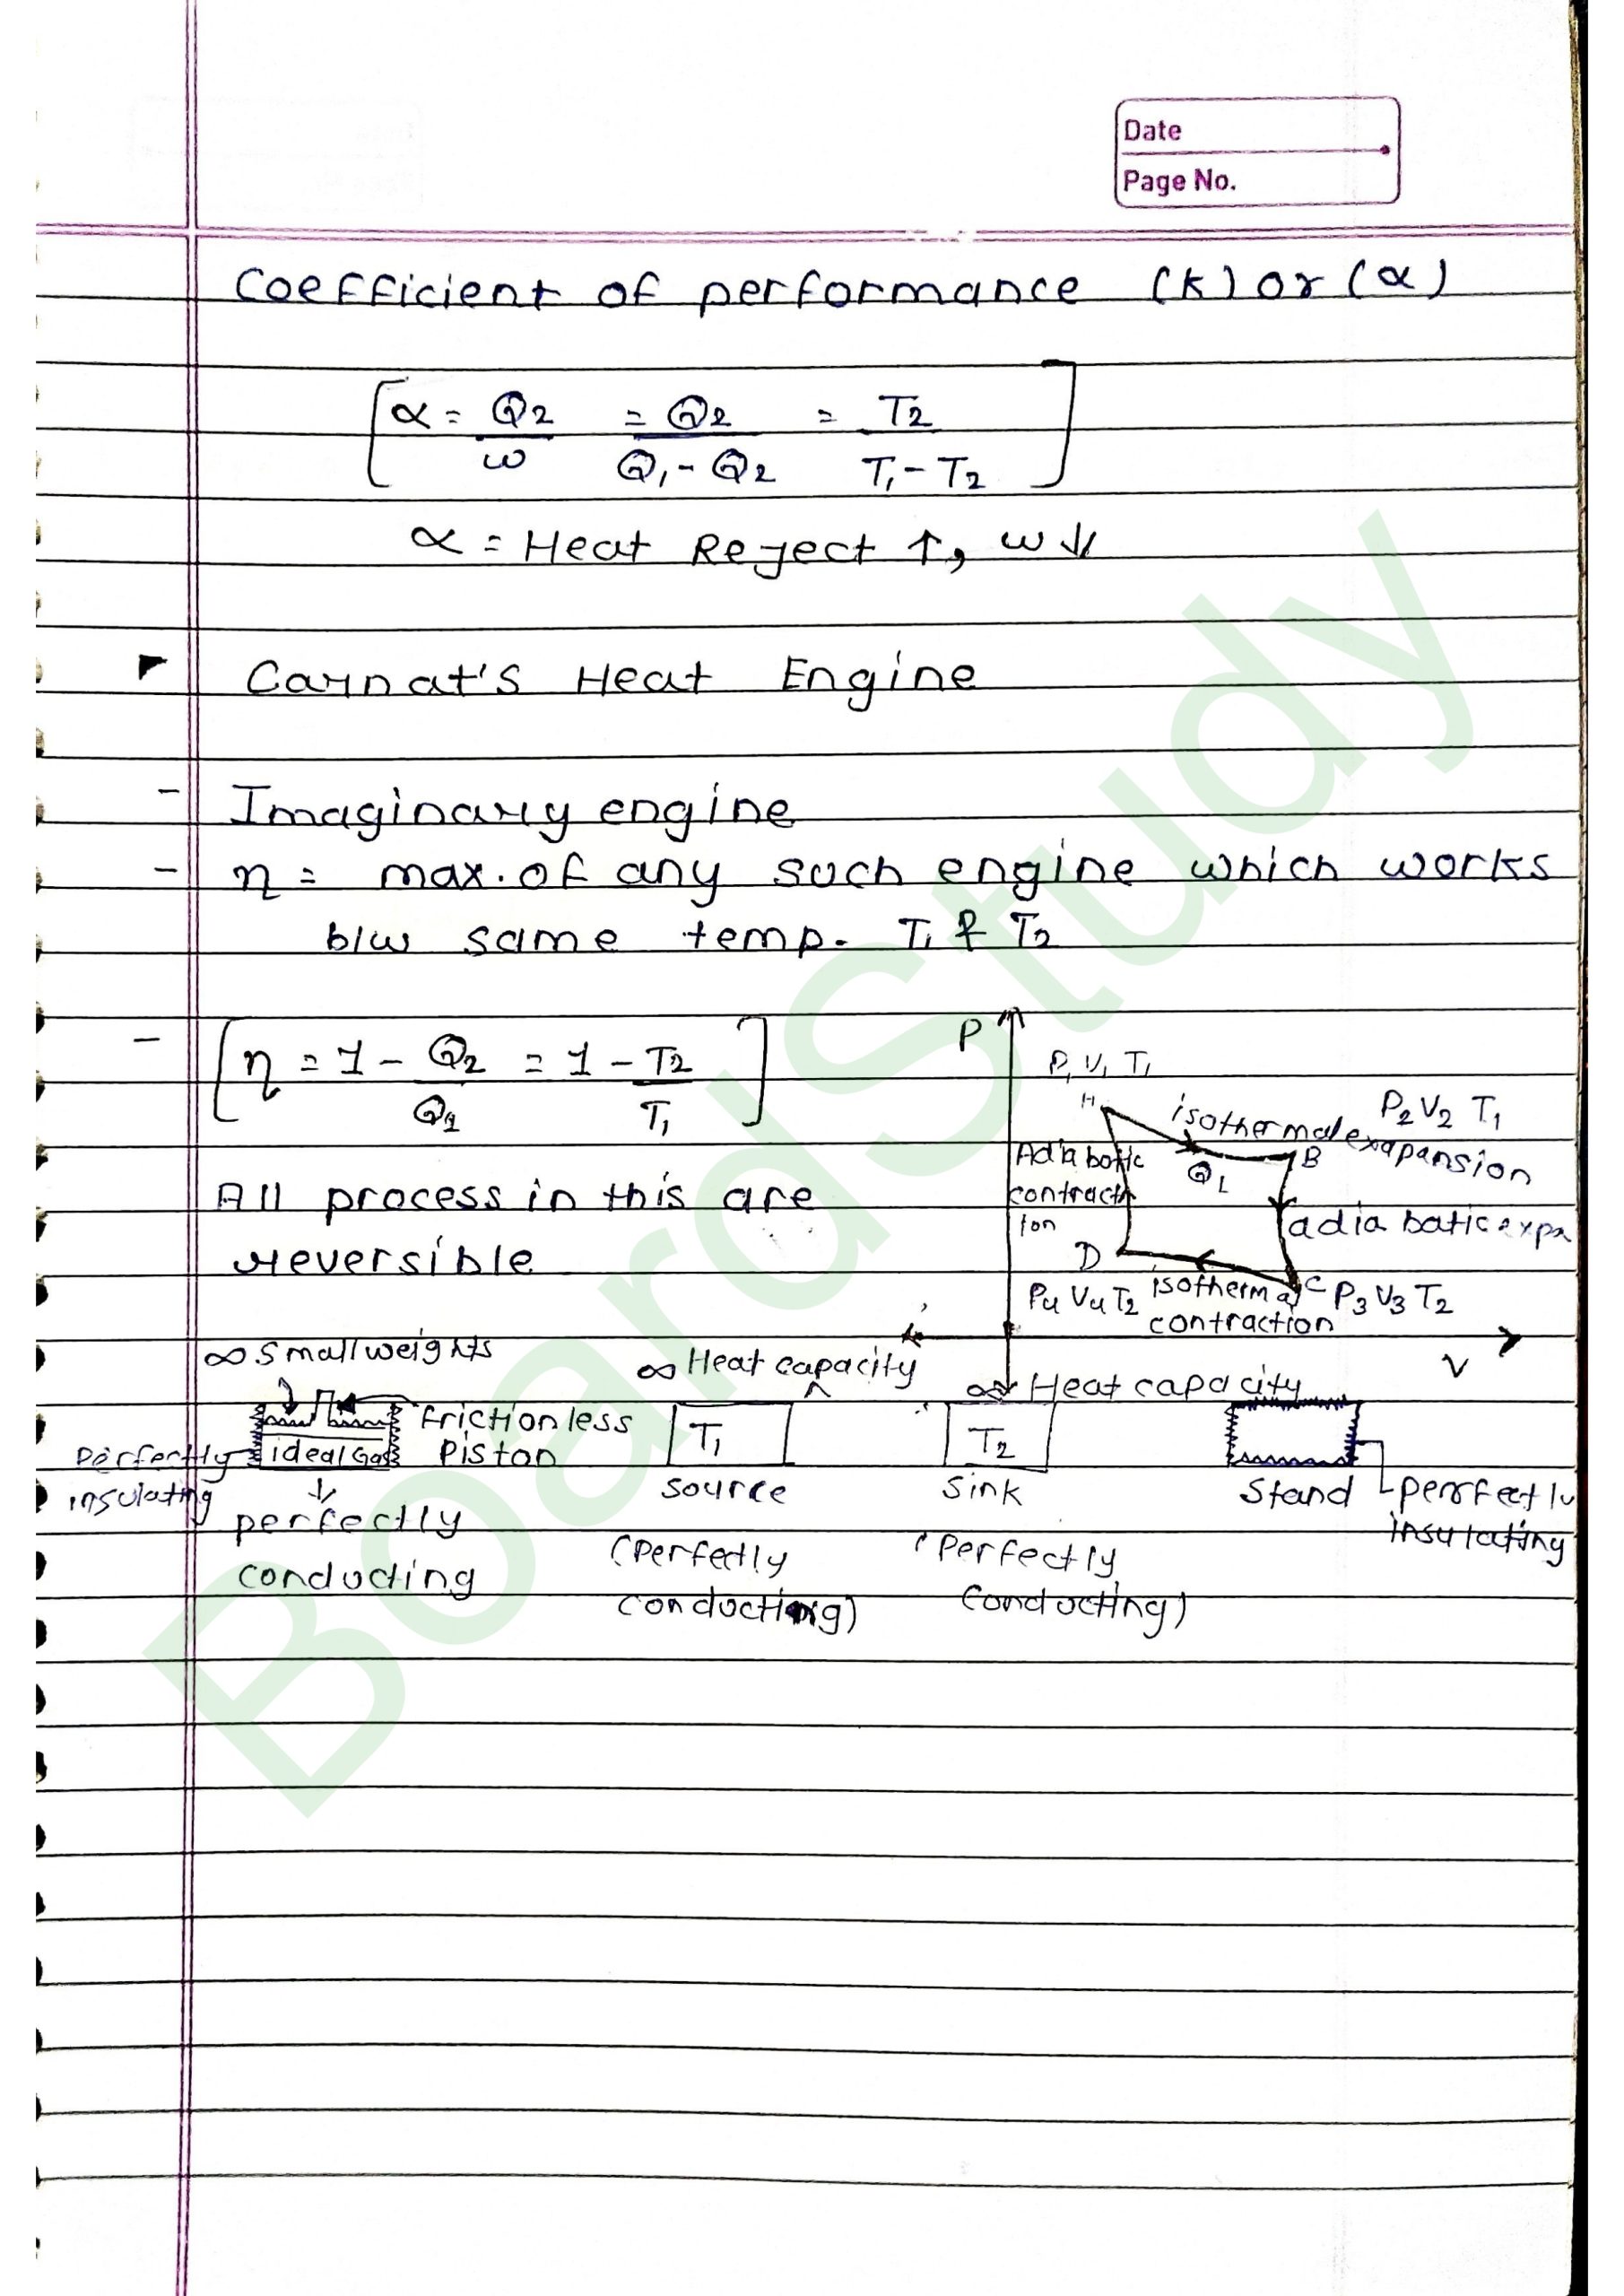 Date
Page No.
Coefficient of performance (k) or (α)
α = Q2/ω = Q2/Q1-Q2 = T2/T1-T2
α = Heat Reject ↑, ω↓
Carnat's Heat Engine
- Imaginary engine
- η = max. of any such engine which works
b/w same temp. T1 & T2
- [η = 1 - Q2/Q1 = 1 - T2/T1]
All process in this are
reversible
P
P1 V1 T1
isothermal exapansion
P2 V2 T1
B
Q1
Adiabatic
contract
ion
adiabatic expa
D
C
P4 V4 T2
isothermal
contraction
P3 V3 T2
V
∞ Small weights
frictionless
piston
ideal Gas
Perfectly
insulating
perfectly
conducting
∞ Heat capacity
T1
source
(perfectly
conducting)
∞ Heat capacity
T2
Sink
(perfectly
conducting)
Stand
perfectly
insulating
BoardStudy